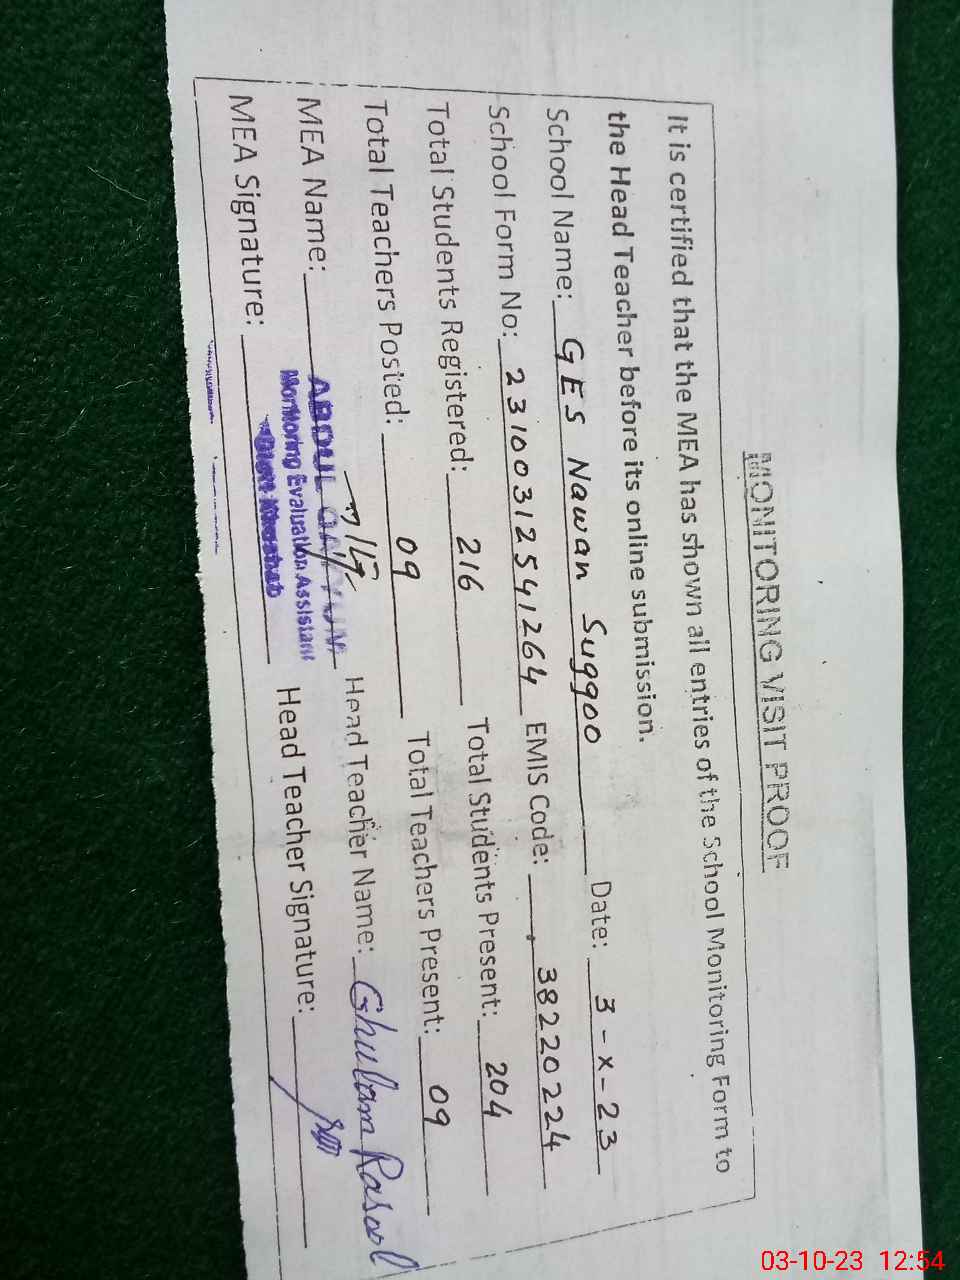 MONITORING VISIT PROOF
It is certified that the MEA has shown all entries of the School Monitoring Form to
the Head Teacher before its online submission.
School Name: GES Nawan Suggoo Date: 3-x-23
School Form No: 231003125541264 EMIS Code: 38220224
Total Students Registered: 216 Total Students Present: 204
Total Teachers Posted: 09 Total Teachers Present: 09
MEA Name: ABDUL QAYYUM Head Teacher Name: Ghulam Rasool
Monitoring Evaluation Assistant
MEA Signature: Khushab Head Teacher Signature:
03-10-23 12:54